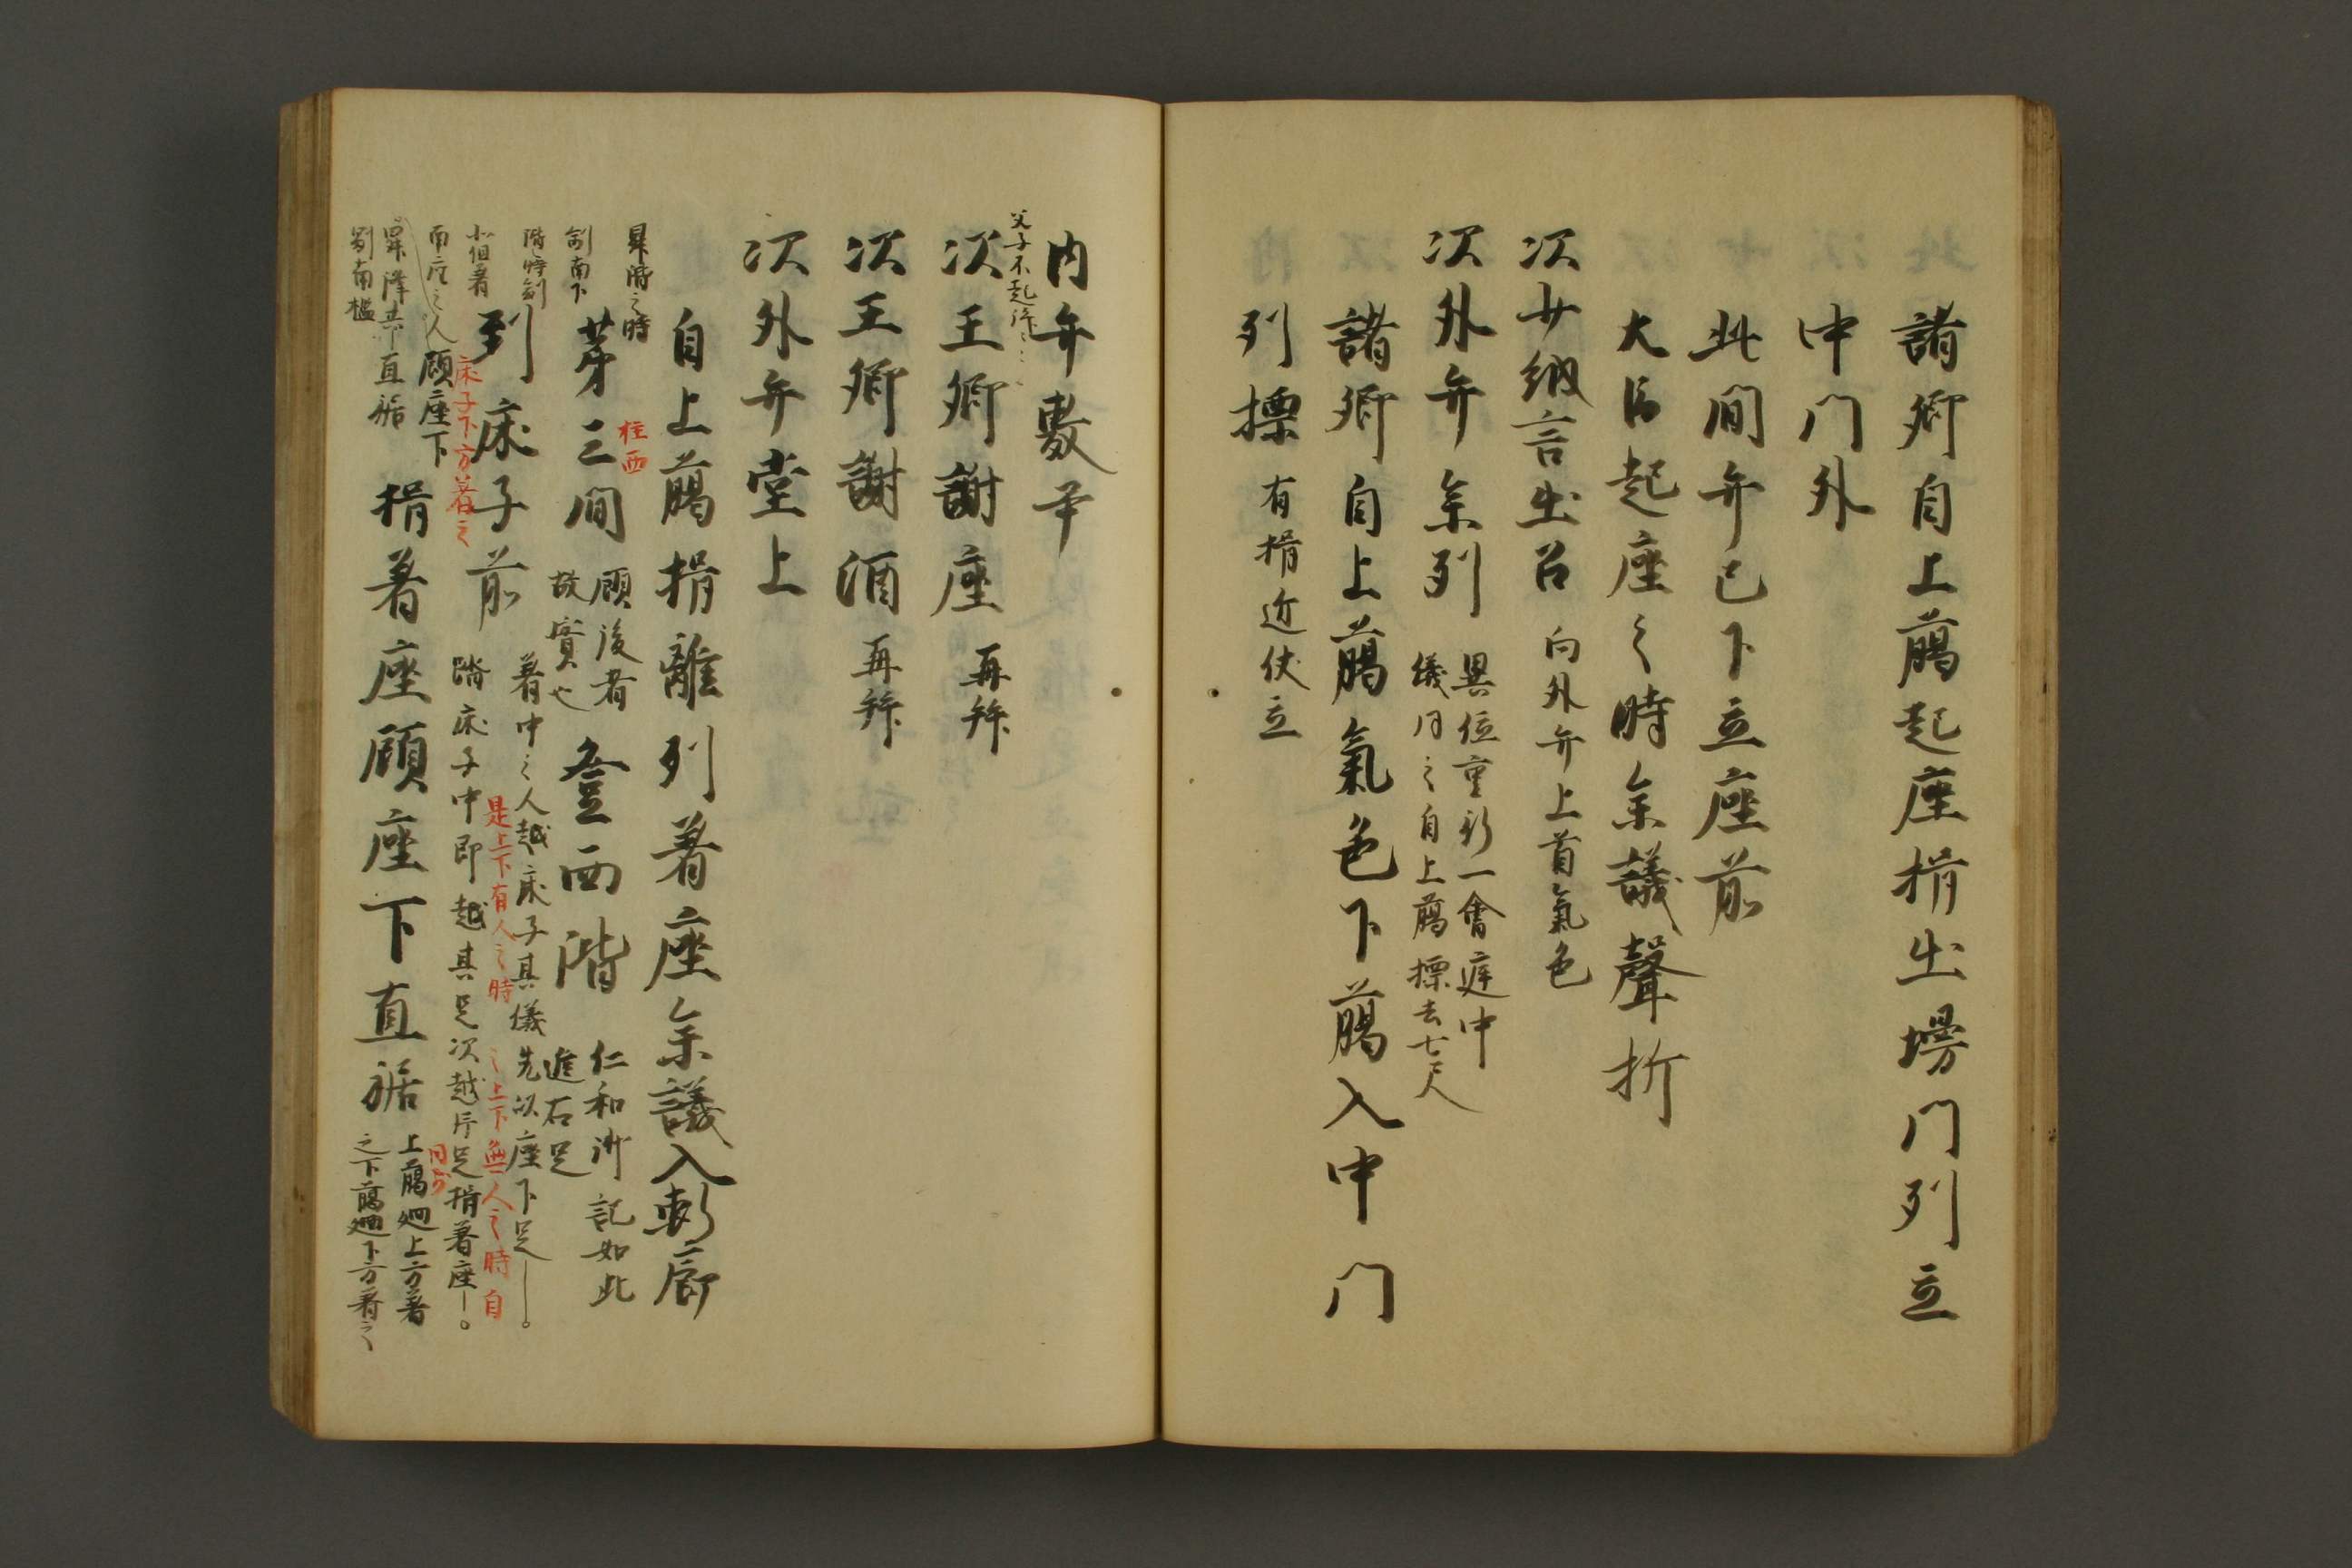 諸卿自上﨟起座揖出塲門列立
中门外
此间弁已下立座前
大臣起座之時参議聲折
次少納言出召 向外弁上首氣色
次外弁参列 異位重行一會庭中
儀同之自上﨟標去七尺
諸卿自上﨟氣色下﨟入中门
列標 有揖近仗立
内弁敷尹
父子不起
次王卿謝座 再拜
次王卿謝酒 再拜
次外弁堂上
自上﨟揖離列着座参議入軒廊
昇階之時
剣南下
柱西
第三间 顧後者
故實也
登西階 仁和 記如此
進右足
階時剣
到床子前 着中之人越床子其儀先以座下足
是上下有人之時
上下無人之時自
踏床子中即越其足次越片足揖着座
床子下方着之
南座之人顧座下
直裾
剣南檻
揖着座顧座下直裾 上﨟廻上方着
之下﨟廻下方着之